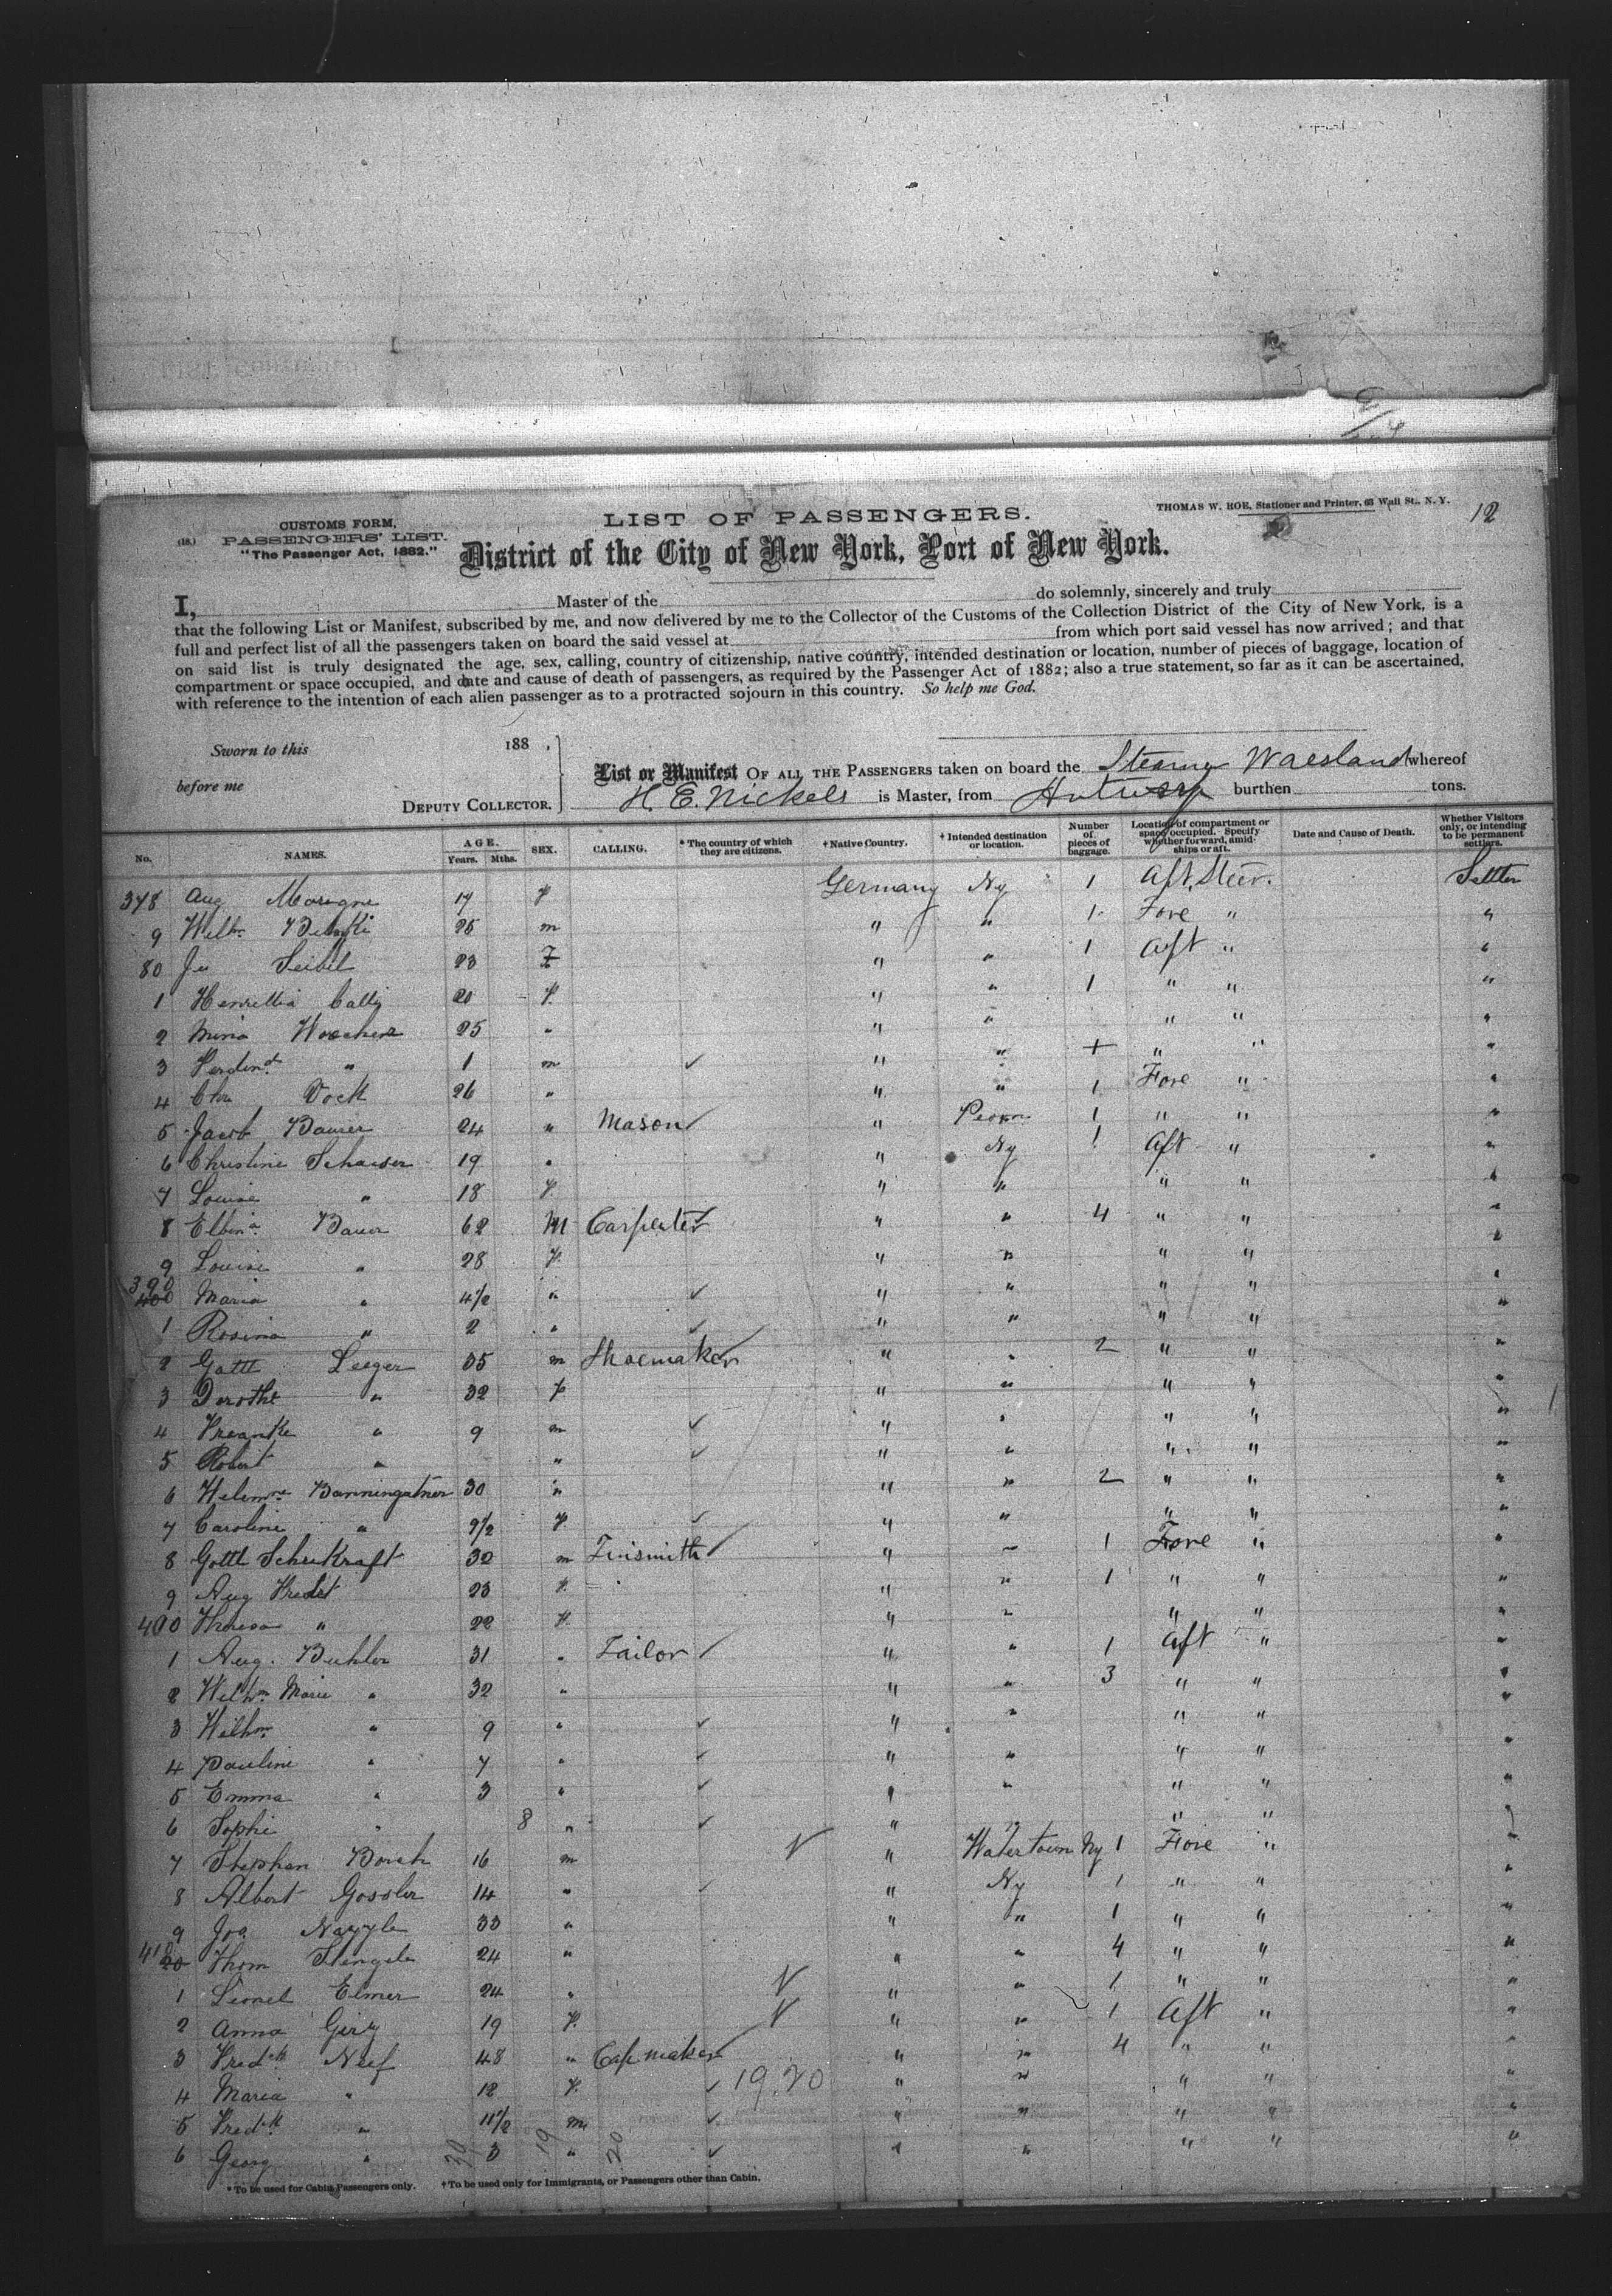 12
THOMAS W. ROE, Stationer and Printer, 63 Wall St., N. Y.
CUSTOMS FORM,
(18.) PASSENGERS' LIST.
"The Passenger Act, 1882."
LIST OF PASSENGERS.
District of the City of New York, Port of New York.
I, Master of the do solemnly, sincerely and truly
that the following List or Manifest, subscribed by me, and now delivered by me to the Collector of the Customs of the Collection District of the City of New York, is a
full and perfect list of all the passengers taken on board the said vessel at from which port said vessel has now arrived; and that
on said list is truly designated the age, sex, calling, country of citizenship, native country, intended destination or location, number of pieces of baggage, location of
compartment or space occupied, and date and cause of death of passengers, as required by the Passenger Act of 1882; also a true statement, so far as it can be ascertained,
with reference to the intention of each alien passenger as to a protracted sojourn in this country. So help me God.
Sworn to this 188 ,
before me
DEPUTY COLLECTOR.
List or Manifest OF ALL THE PASSENGERS taken on board the Steamer Waesland whereof
H. E. Nickels is Master, from Antwerp burthen tons.
No. NAMES. AGE. Years. Mths. SEX. CALLING. * The country of which they are citizens. † Native Country. † Intended destination or location. Number of pieces of baggage. Location of compartment or space occupied. Specify whether forward, amidships or aft. Date and Cause of Death. Whether Visitors only, or intending to be permanent settlers.
378 Aug 17 f Germany Ny 1 Aft Steer. Settler
9 Wilh. 25 m " " 1 Fore " "
80 Seibel 23 f " " 1 Aft " "
1 20 f " " 1 " " "
2 25 " " " " " "
3 Ferdind " 1 m " " + " " "
4 Chr Vock 26 " " " 1 Fore " "
5 Jacob Baurer 24 " Mason " 1 " " "
6 Christine 19 " " Ny 1 Aft " "
7 Louise " 18 f " " " " "
8 Bauer 62 M Carpenter " " 4 " " "
9 Louise " 28 f " " " " "
390 Maria " 4 1/2 " " " " " "
1 Rosina " 2 " " " " " "
2 Gottl Leeger 35 m Shoemaker " " 2 " " "
3 Dorothe " 32 f " " " " "
4 " 9 m " " " " "
5 Robert " " " " " " "
6 Banningatner 30 " " " 2 " " "
7 Caroline " 9 1/2 f " " " " "
8 Gottl Schukraft 32 m Tinsmith " " 1 Fore " "
9 Aug 23 f " " 1 " " "
400 " 22 f " " " " "
1 Aug. Buhler 31 " Tailor " " 1 Aft " "
2 Wilhm Marie " 32 " " " 3 " " "
3 Wilhm " 9 " " " " " "
4 Pauline " 7 " " " " " "
5 Emma " 3 " " " " " "
6 Sophi " 8 " " " " " "
7 Stephan 16 m " Watertown Ny 1 Fore " "
8 Albert Gossler 14 " " Ny 1 " " "
9 Jos. 33 " " " 1 " " "
410 Thom Stengele 24 " " " 4 " " "
1 Lionel Elmer 24 " " " 1 " " "
2 Anna 19 f " " 1 Aft " "
3 Fredk Neef 48 " Cap maker " " 4 " " "
4 Maria " 12 f 19.20 " " " " "
5 Fredk " 11 1/2 m " " " " "
6 Georg " 3 " " " " " "
30 19 20
* To be used for Cabin Passengers only. † To be used only for Immigrants, or Passengers other than Cabin.